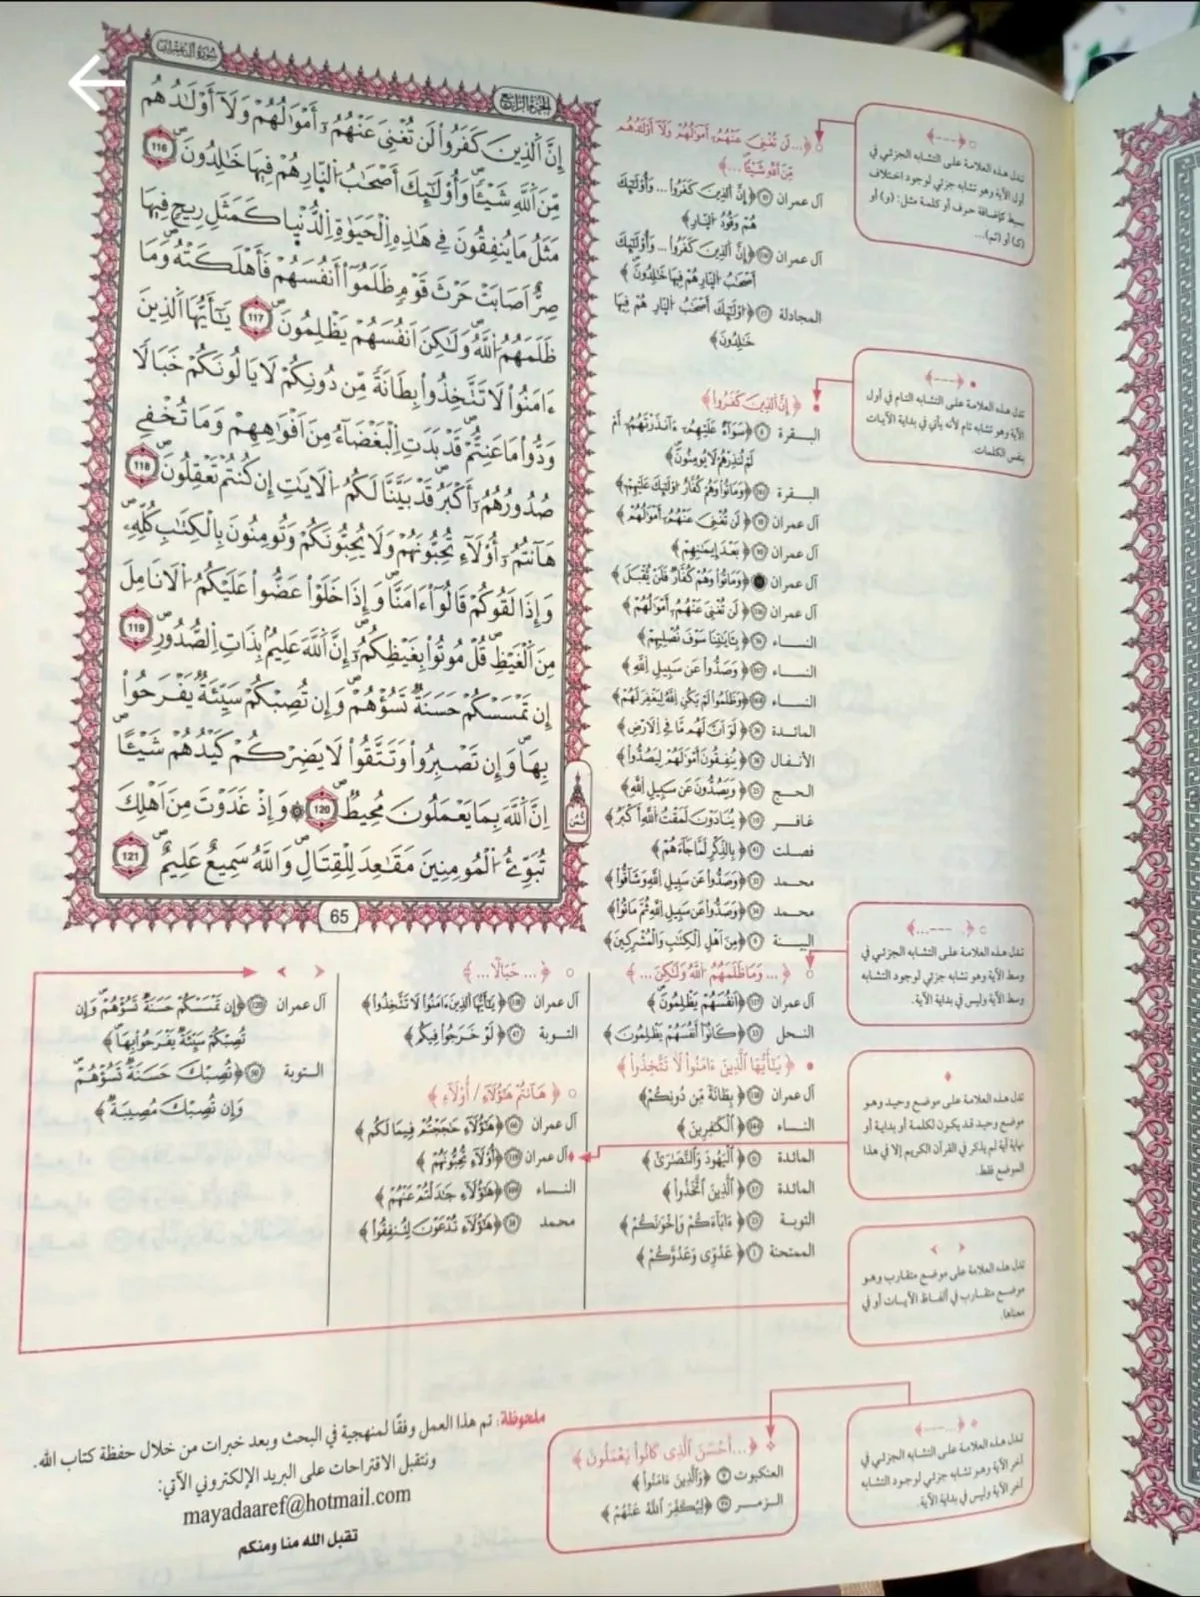 سورة آل عمران
الجزء الرابع
إِنَّ ٱلَّذِينَ كَفَرُوا۟ لَن تُغْنِىَ عَنْهُمُۥٓ أَمْوَٰلُهُمْ وَلَآ أَوْلَٰدُهُم
مِّنَ ٱللَّهِ شَيْـًٔا وَأُو۟لَٰٓئِكَ أَصْحَٰبُ ٱلنّ۪ارِ هُمْ فِيهَا خَٰلِدُونَ 116
مَثَلُ مَا يُنفِقُونَ فِى هَٰذِهِ ٱلْحَيَوٰةِ ٱلدُّنْيَا كَمَثَلِ رِيحٍ فِيهَا
صِرٌّ أَصَابَتْ حَرْثَ قَوْمٍ ظَلَمُوٓا۟ أَنفُسَهُمْ فَأَهْلَكَتْهُ وَمَا
ظَلَمَهُمُ ٱللَّهُ وَلَٰكِنَ اَنفُسَهُمْ يَظْلِمُونَ 117 يَٰٓأَيُّهَا ٱلَّذِينَ
ءَامَنُوا۟ لَا تَتَّخِذُوا۟ بِطَانَةً مِّن دُونِكُمْ لَا يَالُونَكُمْ خَبَالًا
وَدُّوا۟ مَا عَنِتُّمْ قَدْ بَدَتِ ٱلْبَغْضَآءُ مِنَ اَفْوَٰهِهِمْ وَمَا تُخْفِے
صُدُورُهُمُۥٓ أَكْبَرُ قَدْ بَيَّنَّا لَكُمُ ٱلَايَٰتِ إِن كُنتُمْ تَعْقِلُونَ 118
هَآنتُمُۥٓ أُو۟لَآءِ تُحِبُّونَهُمْ وَلَا يُحِبُّونَكُمْ وَتُومِنُونَ بِالْكِتَٰبِ كُلِّهِۦ
وَإِذَا لَقُوكُمْ قَالُوٓا۟ ءَامَنَّا وَإِذَا خَلَوْا۟ عَضُّوا۟ عَلَيْكُمُ ٱلَانَامِلَ
مِنَ ٱلْغَيْظِ قُلْ مُوتُوا۟ بِغَيْظِكُمُۥٓ إِنَّ ٱللَّهَ عَلِيمٌۢ بِذَاتِ ٱلصُّدُورِ 119
إِن تَمْسَسْكُمْ حَسَنَةٌ تَسُؤْهُمْ وَإِن تُصِبْكُمْ سَيِّئَةٌ يَفْرَحُوا۟
بِهَا وَإِن تَصْبِرُوا۟ وَتَتَّقُوا۟ لَا يَضِرْكُمْ كَيْدُهُمْ شَيْـًٔا
اِنَّ ٱللَّهَ بِمَا يَعْمَلُونَ مُحِيطٌ 120 وَإِذْ غَدَوْتَ مِنَ اَهْلِكَ
تُبَوِّئُ ٱلْمُومِنِينَ مَقَٰعِدَ لِلْقِتَالِ وَٱللَّهُ سَمِيعٌ عَلِيمٌ 121
ثُمُن
65
﴿...لَن تُغْنِىَ عَنْهُمُۥٓ أَمْوَٰلُهُمْ وَلَآ أَوْلَٰدُهُم
مِّنَ ٱللَّهِ شَيْـًٔا...﴾
آل عمران ﴿إِنَّ ٱلَّذِينَ كَفَرُوا۟ ... وَأُو۟لَٰٓئِكَ
هُمْ وَقُودُ ٱلنّ۪ارِ﴾
آل عمران ﴿إِنَّ ٱلَّذِينَ كَفَرُوا۟ ... وَأُو۟لَٰٓئِكَ
أَصْحَٰبُ ٱلنّ۪ارِ هُمْ فِيهَا خَٰلِدُونَ﴾
المجادلة ﴿أُو۟لَٰٓئِكَ أَصْحَٰبُ ٱلنّ۪ارِ هُمْ فِيهَا
خَٰلِدُونَ﴾
﴿إِنَّ ٱلَّذِينَ كَفَرُوا۟﴾
البقرة ﴿سَوَآءٌ عَلَيْهِمُۥٓ ءَآنذَرْتَهُمُۥٓ أَمْ
لَمْ تُنذِرْهُمْ لَا يُومِنُونَ﴾
البقرة ﴿وَمَاتُوا۟ وَهُمْ كُفَّارٌ اُو۟لَٰٓئِكَ عَلَيْهِمْ﴾
آل عمران ﴿لَن تُغْنِىَ عَنْهُمُۥٓ أَمْوَٰلُهُمْ﴾
آل عمران ﴿بَعْدَ إِيمَٰنِهِمْ﴾
آل عمران ﴿وَمَاتُوا۟ وَهُمْ كُفَّارٌ فَلَنْ يُّقْبَلَ﴾
آل عمران ﴿لَن تُغْنِىَ عَنْهُمُۥٓ أَمْوَٰلُهُمْ﴾
النساء ﴿بِـَٔايَٰتِنَا سَوْفَ نُصْلِيهِمْ﴾
النساء ﴿وَصَدُّوا۟ عَن سَبِيلِ ٱللَّهِ﴾
النساء ﴿وَظَلَمُوا۟ لَمْ يَكُنِ ٱللَّهُ لِيَغْفِرَ لَهُمْ﴾
المائدة ﴿لَوَ اَنَّ لَهُم مَّا فِى ٱلَارْضِ﴾
الأنفال ﴿يُنفِقُونَ أَمْوَٰلَهُمْ لِيَصُدُّوا۟﴾
الحج ﴿وَيَصُدُّونَ عَن سَبِيلِ ٱللَّهِ﴾
غافر ﴿يُنَادَوْنَ لَمَقْتُ ٱللَّهِ أَكْبَرُ﴾
فصلت ﴿بِالذِّكْرِ لَمَّا جَآءَهُمْ﴾
محمد ﴿وَصَدُّوا۟ عَن سَبِيلِ ٱللَّهِ وَشَآقُّوا۟﴾
محمد ﴿وَصَدُّوا۟ عَن سَبِيلِ ٱللَّهِ ثُمَّ مَاتُوا۟﴾
البينة ﴿مِنَ اَهْلِ ٱلْكِتَٰبِ وَٱلْمُشْرِكِينَ﴾
﴿... وَمَا ظَلَمَهُمُ ٱللَّهُ وَلَٰكِنَ ...﴾
آل عمران ﴿اَنفُسَهُمْ يَظْلِمُونَ﴾
النحل ﴿كَانُوٓا۟ أَنفُسَهُمْ يَظْلِمُونَ﴾
﴿يَٰٓأَيُّهَا ٱلَّذِينَ ءَامَنُوا۟ لَا تَتَّخِذُوا۟﴾
آل عمران ﴿بِطَانَةً مِّن دُونِكُمْ﴾
النساء ﴿ٱلْكَٰفِرِينَ﴾
المائدة ﴿ٱلْيَهُودَ وَٱلنَّصَٰرَىٰٓ﴾
المائدة ﴿ٱلَّذِينَ ٱتَّخَذُوا۟﴾
التوبة ﴿ءَابَآءَكُمْ وَإِخْوَٰنَكُمُ﴾
الممتحنة ﴿عَدُوِّى وَعَدُوَّكُمُ﴾
﴿... خَبَالًا...﴾
آل عمران ﴿يَٰٓأَيُّهَا ٱلَّذِينَ ءَامَنُوا۟ لَا تَتَّخِذُوا۟﴾
التوبة ﴿لَوْ خَرَجُوا۟ فِيكُم﴾
﴿هَآنتُمْ هَٰٓؤُلَآءِ / أُو۟لَآءِ﴾
آل عمران ﴿هَٰٓؤُلَآءِ حَٰجَجْتُمْ فِيمَا لَكُم﴾
آل عمران ﴿أُو۟لَآءِ تُحِبُّونَهُمْ﴾
النساء ﴿هَٰٓؤُلَآءِ جَٰدَلْتُمْ عَنْهُمْ﴾
محمد ﴿هَٰٓؤُلَآءِ تُدْعَوْنَ لِتُنفِقُوا۟﴾
آل عمران ﴿إِن تَمْسَسْكُمْ حَسَنَةٌ تَسُؤْهُمْ وَإِن
تُصِبْكُمْ سَيِّئَةٌ يَفْرَحُوا۟ بِهَا﴾
التوبة ﴿تُصِبْكَ حَسَنَةٌ تَسُؤْهُمْ
وَإِن تُصِبْكَ مُصِيبَةٌ﴾
تدل هذه العلامة على التشابه الجزئي في
أول الآية وهو تشابه جزئي لوجود اختلاف
بسيط كإضافة حرف أو كلمة مثل: (و) أو
(ك) أو (ثم)...
تدل هذه العلامة على التشابه التام في أول
الآية وهو تشابه تام لأنه يأتي في بداية الآيات
بنفس الكلمات.
تدل هذه العلامة على التشابه الجزئي في
وسط الآية وهو تشابه جزئي لوجود التشابه
وسط الآية وليس في بداية الآية.
تدل هذه العلامة على موضع وحيد وهو
موضع وحيد قد يكون لكلمة أو بداية أو
نهاية آية لم يذكر في القرآن الكريم إلا في هذا
الموضع فقط.
تدل هذه العلامة على موضع متقارب وهو
موضع متقارب في ألفاظ الآيات أو في
معناها.
تدل هذه العلامة على التشابه الجزئي في
آخر الآية وهو تشابه جزئي لوجود التشابه
آخر الآية وليس في بداية الآية.
﴿...أَحْسَنَ ٱلَّذِى كَانُوا۟ يَعْمَلُونَ﴾
العنكبوت ﴿وَٱلَّذِينَ ءَامَنُوا۟﴾
الزمر ﴿لِيُكَفِّرَ ٱللَّهُ عَنْهُمْ﴾
ملحوظة: تم هذا العمل وفقًا لمنهجية في البحث وبعد خبرات من خلال حفظة كتاب الله.
ونتقبل الاقتراحات على البريد الإلكتروني الآتي:
mayadaaref@hotmail.com
تقبل الله منا ومنكم